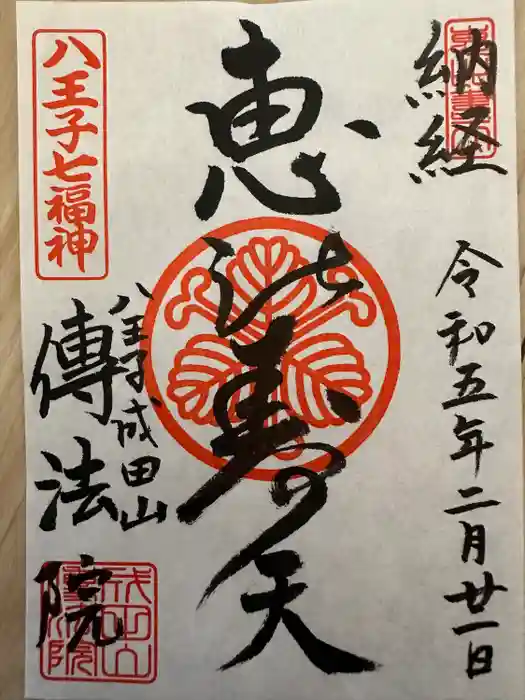 納経
令和五年二月廿一日
恵比寿の天
八王子七福神
八王子成田山
傳法院
成田山傳法院